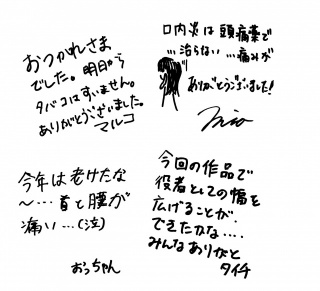 おつかれさま
でした。明日から
タバコはすいません。
ありがとうございました。
マルコ
口内炎は頭痛薬で
…治らない…痛みが
ありがとうございました!
Mio
今年は老けたな
〜…首と腰が
痛い…(泣)
おっちゃん
今回の作品で
役者としての幅を
広げることが
できたかな….
みんなありがと
タイチ